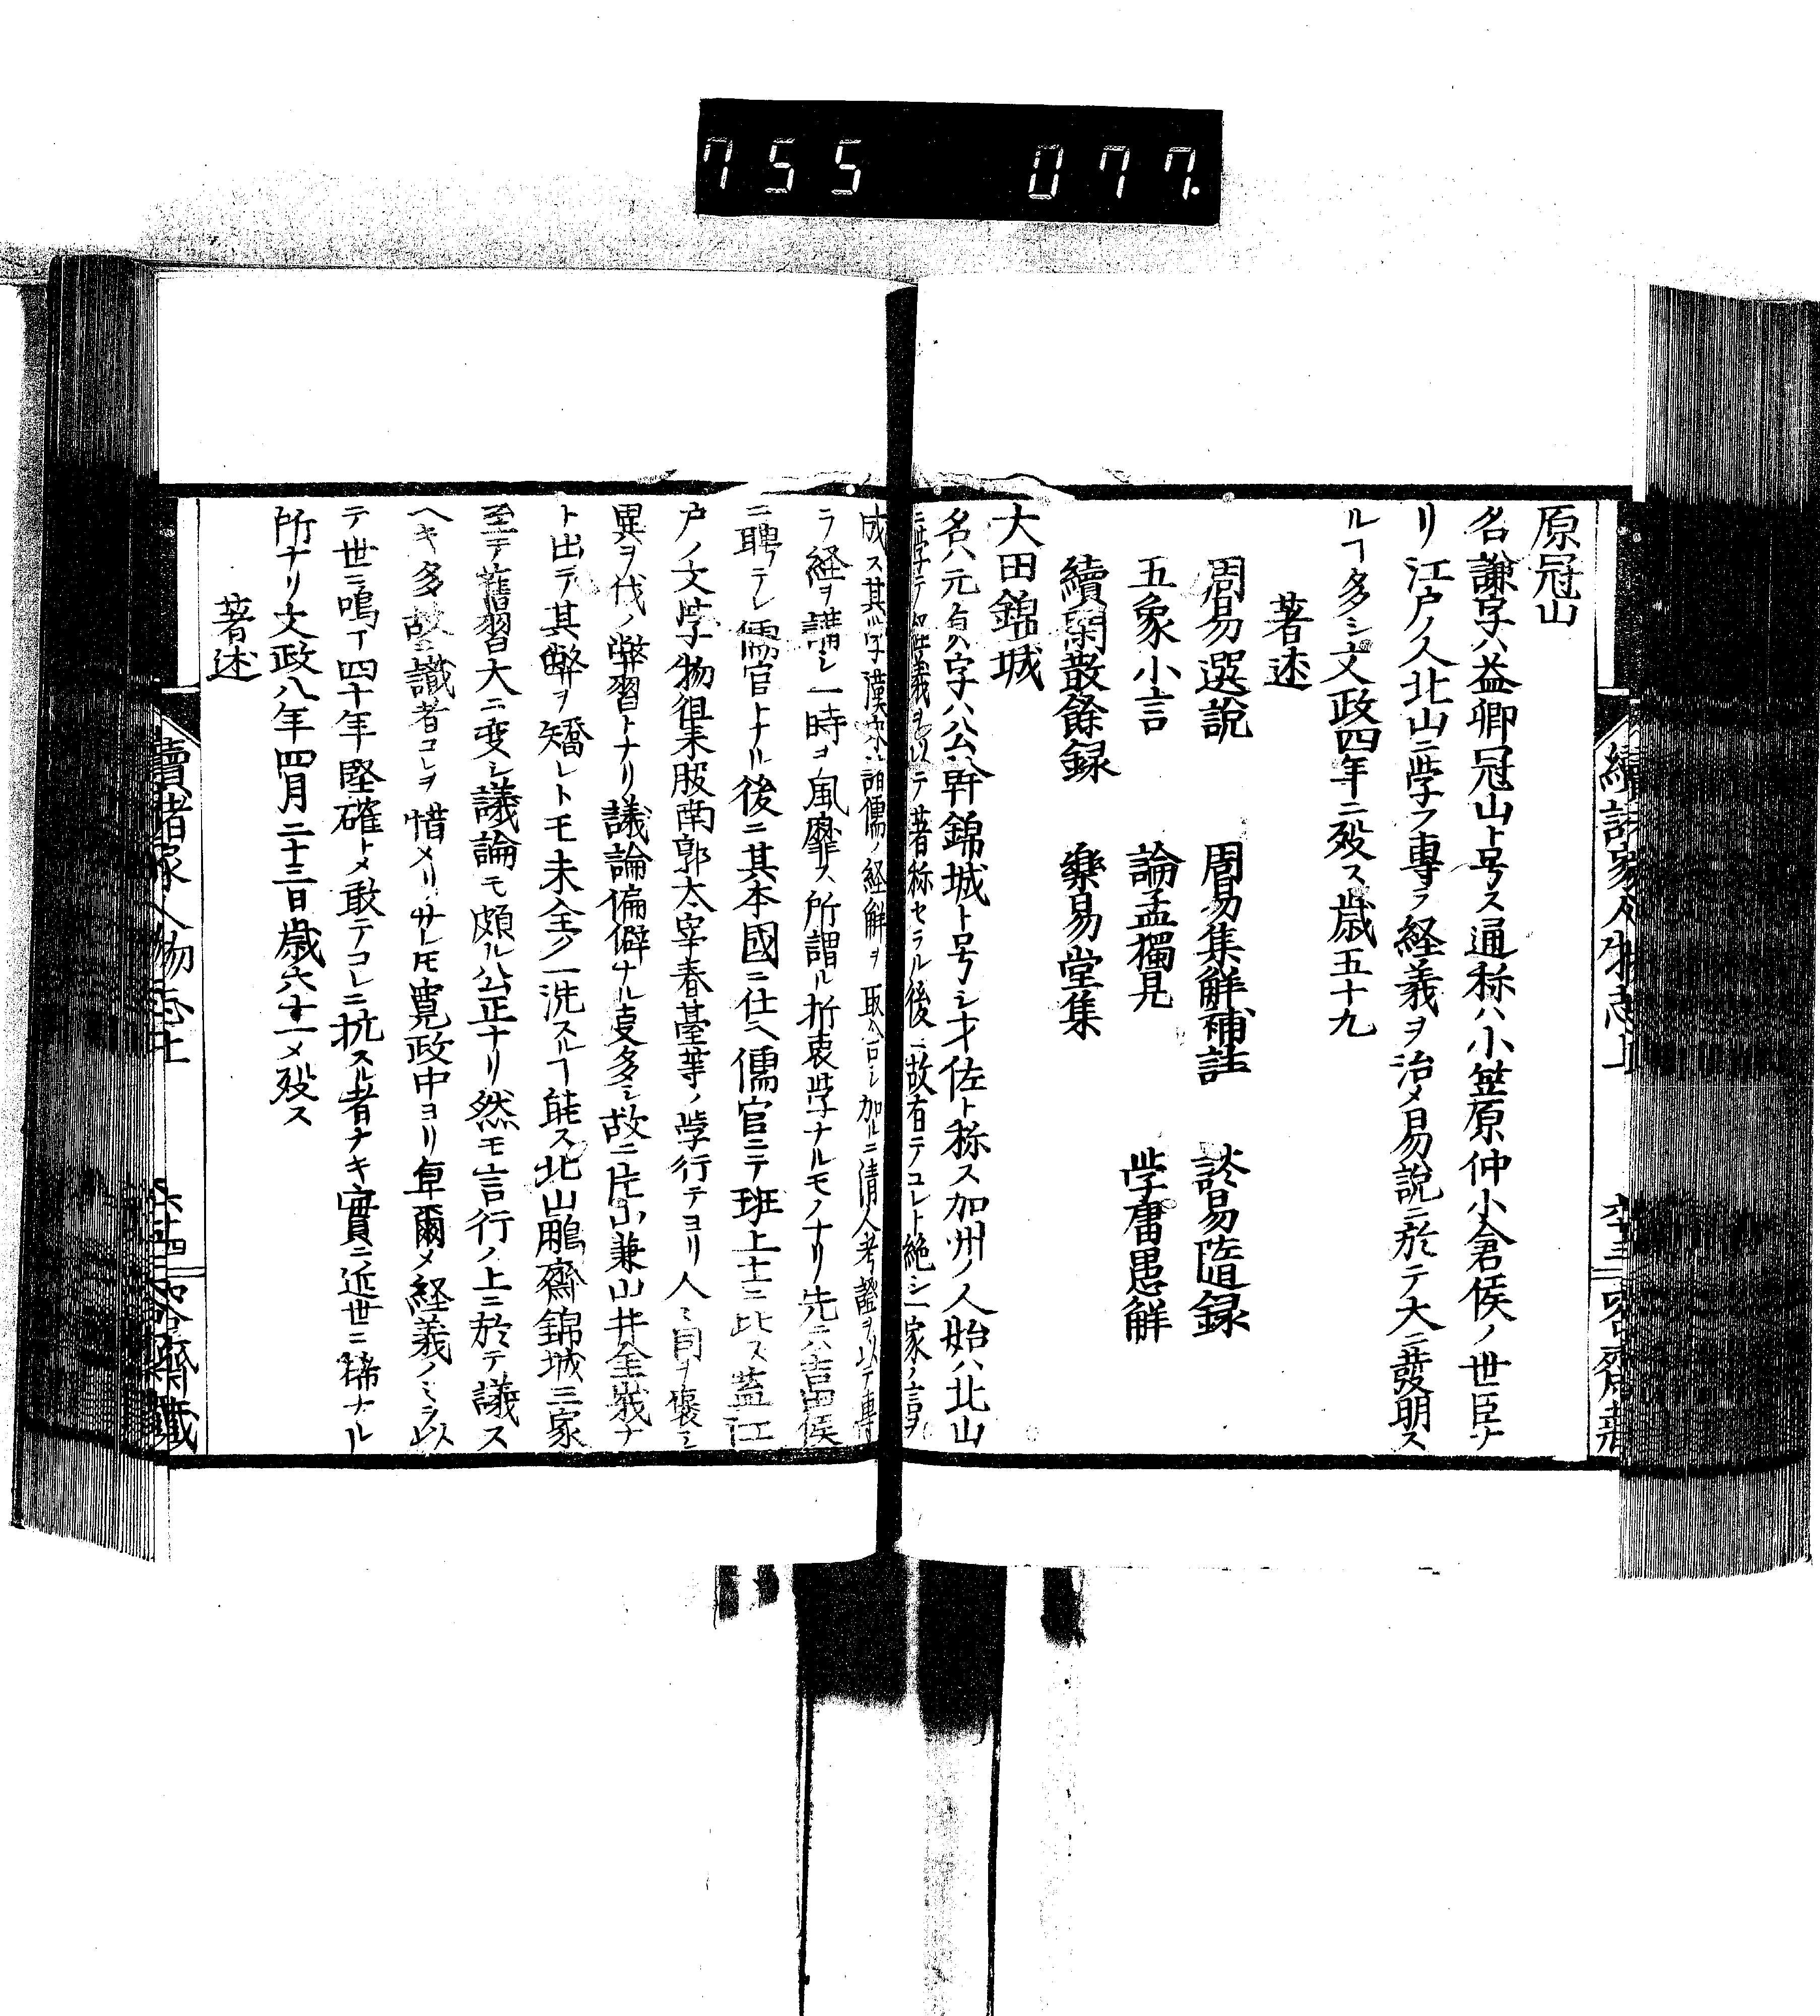 755 077.
原冠山
名ハ謙字ハ益卿冠山ト号ス通称ハ小笠原仲小倉侯ノ世臣ナ
リ江戸ノ人北山ニ学フ専ラ経義ヲ治メ易説ニ於テ大ニ發明ス
ルヿ多シ文政四年ニ殁ス歳五十九
著述
周易選説 周易集解補註 談易隨録
五象小言 論孟獨見 学庸愚解
續閑散餘録 樂易堂集
大田錦城
名ハ元貞字ハ公幹錦城ト号シ才佐ト称ス加州ノ人始ハ北山
ニ学テ経義ヲ以テ著称セラル後ニ故有テコレト絶シ一家ノ言ヲ
成ス其学漢宋諸儒ノ経解ヲ取舎シ加ルニ清人考證ヲ以テ専
ラ経ヲ講シ一時ヲ風靡ス所謂ル折衷学ナルモノナリ先ニ吉田侯
ニ聘テレ儒官トナル後ニ其本國ニ仕ヘ儒官ニテ班上士ニ比ス蓋江
戸ノ文学物徂来服南郭太宰春臺等ノ学行テヨリ人〻自ヲ褒シ
異ヲ伐ノ弊習トナリ議論偏僻ナル叓多シ故ニ片山兼山井金峩ナ
ト出テ其弊ヲ矯レトモ未全ク一洗スルヿ能ス北山鵬齋錦城三家
至テ舊習大ニ変シ議論モ頗ル公正ナリ然モ言行ノ上ニ於テ議ス
ヘキ多故識者コレヲ惜メリサレモ寛政中ヨリ卓爾メ経義ノミヲ以
テ世ニ鳴ヿ四十年堅確トメ敢テコレニ抗スル者ナキ實ニ近世ニ稀ナル
所ナリ文政八年四月二十三日歳六十一メ殁ス
著述
續諸家人物志上 六十四